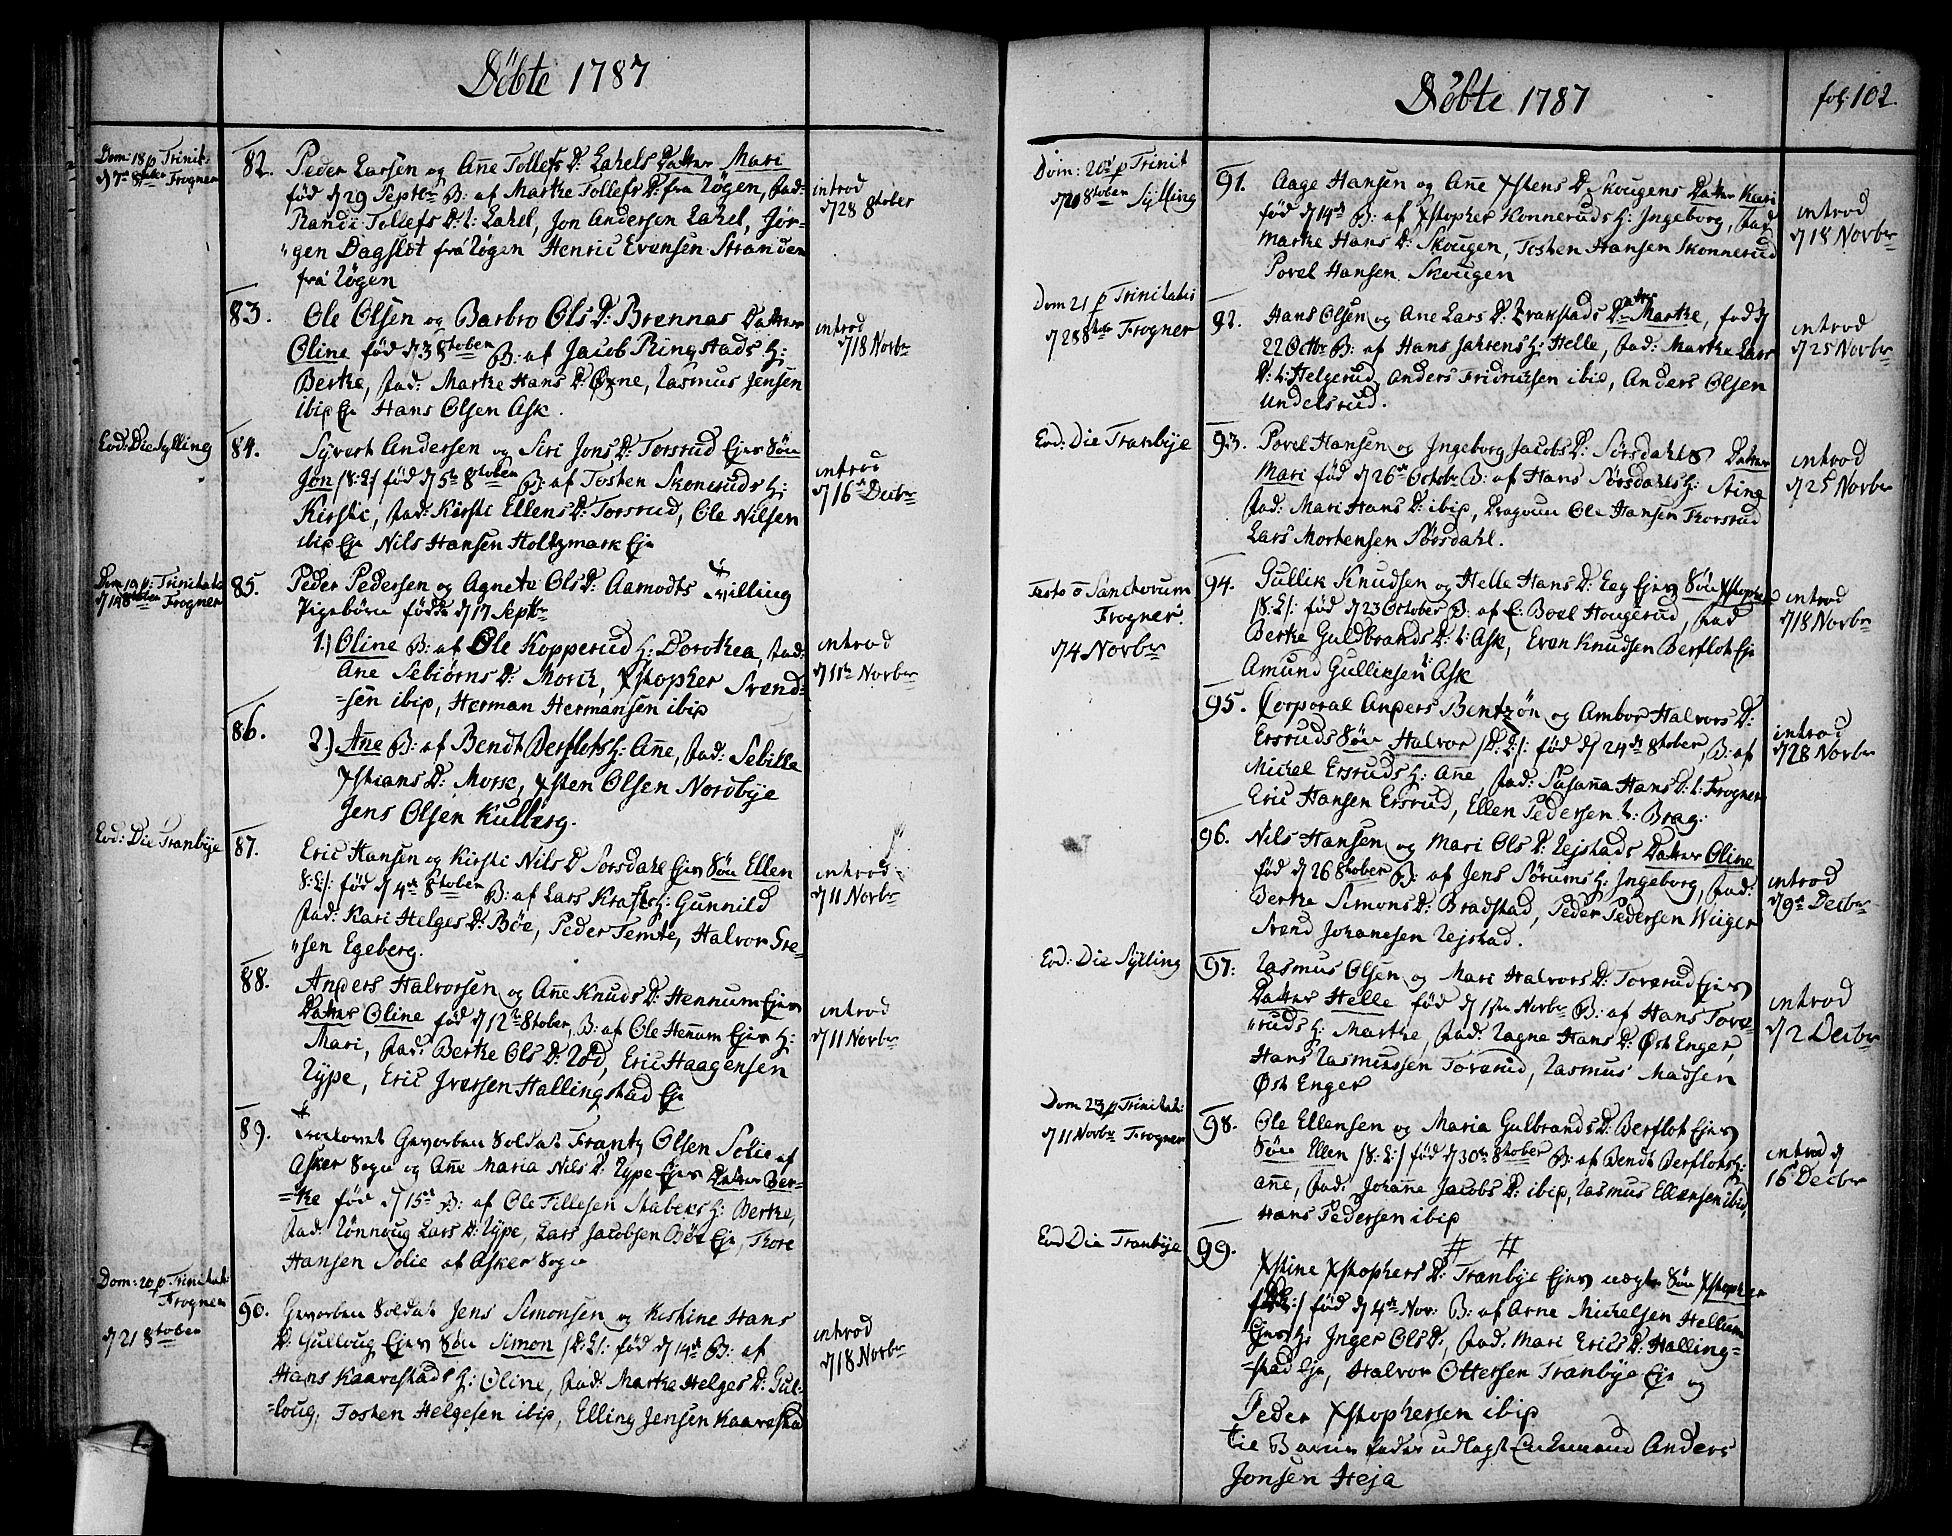 Döbte 1787
Dom: 18 p Trinit:
d 7de 8tober Frogner
82. Peder Larsen og Añe Tollefs D: Lahels Datter Mari
fød d 29 Septbr B: af Marthe Tollefs D: fra Røgen, fad:
Randi Tollefs D: t: Lahel, Jon Andersen Lahel, Jör-
"gen Dagslet fra Røgen Henric Evensen Stranden
fra Røgen
introd
d 28 8tober
83. Ole Olsen og Barbro Ols D: Brennas Datter
Oline fød d 3 8tober B: af Jacob Ringstads H:
Berthe, fad: Marthe Hans D: Øxne, Rasmus Jensen
ibid Eje Hans Olsen Ask.
introd
d 18 Novbr
Eod: Die Sylling
84. Syvert Andersen og Siri Jons D: Torsrud Ejes Søn
Jon /S:L:/ fød d 5te 8tober B: af Tosten Skoneruds H:
Kirsti, fad: Kirsti Ellens D: Torsrud, Ole Nilsen
ibid Eje Nils Hansen Holtzmark Eje
introd
d 16 Decbr
Dom 19 p: Trinitatis
d 14 8tober Frogner
85. Peder Pedersen og Agnete Ols D: Aamodts Tvilling
Pigebörn födde d 17 Septbr
1) Oline B: af Ole Kopperud H: Dorothea, fad:
Ane Sebiørns D: Morck, Xstopher Svend-
=sen ibid, Herman Hermansen ibid
introd
d 11te Novbr
86. 2) Añe B: af Bendt Berflots H: Añe, fad: Sebille
Xstians D: Morck, Xsten Olsen Nordbye
Jens Olsen Kulberg.
Eod: Die Tranbye
87. Eric Hansen og Kirsti Nils D Sørsdahl Ejes Søn Ellen
S:L:/: fød d 4de 8tober B: af Lars Krafts H: Gunnild
fad: Kari Helges D: Bøe, Peder Temte, Halvor Gre-
"sen Egeberg.
introd
d 11 Novbr
88. Anders Halvorsen og Añe Knuds D: Hennum Ejes
Datter Oline fød d 12te 8tober, B: af Ole Heñum Ejes H:
Mari, fad: Berthe Ols D: Rød, Eric Haagensen
Rype, Eric Iversen Hallingstad Eje
introd
d 11 Novbr
89. Trolovet Gevorben Soldat Frantz Olsen Solie af
Asker Sogn og Añe Maria Nils D: Rype Ejes Datter Ber-
=the fød d 15de B: af Ole Tillesen Stabeks H: Berthe,
fad: Rönnoug Lars D: Rype, Lars Jacobsen Bøe Eje, Thore
Hansen Solie af Asker Sogn
Dom: 20 p Trinitati:
Frogner
d 21 8tober
90. Gevorben Soldat Jens Simonsen og Kirstine Hans
D: Gulloug Ejes Søn Simon /D:L/: fød d 14de B: af
Hans Kaarestads H: Oline, fad: Marthe Helges D: Gul-
=loug, Tosten Helgesen ibid, Elling Jensen Kaarestad
introd
d 18 Novbr
Döbte 1787
fol: 102.
Dom: 20 p Trinit
d 20 8tober Sylling
91. Aage Hansen og Añe Xstens D. Skougens Datter Kari
fød d 14de B: af Xstopher Skonneruds H: Ingeborg, fad
Marthe Hans D: Skougen, Tosten Hansen Skonnerud
Povel Hansen Skougen
introd
d 18 Novbr
Dom 21 p Trinitatis
d 28 8tober Frogner
92. Hans Olsen og Ane Lars D: Trakstads Datter Marthe, fød d
22 Octbr B: af Hans Jahrens H: Helle, fad: Marthe Lars
D: t: Helgerud, Anders Fridrichsen ibid, Anders Olsen
Undelsrud.
introd
d 25 Novbr
Eod: Die Tranbye
93. Povel Hansen og Ingeborg Jacobs D: Sørsdahls Datter
Mari fød d 26de Octobr B: af Hans Sørsdahls H: Stine
fad: Mari Hans D: ibid, Dragoun Ole Hansen Thorsrud
Lars Mortensen Sørsdahl.
introd
d 25 Novbr
Festo o Sanctorum
Frogner:
d 4 Novbr
94. Gullik Knudsen og Helle Hans D: Eeg Ejes Søn Xstopher
/S:L/: fød d 23 October B: af E: Boel Hougerud, fad
Berthe Guldbrands D: t: Ask, Even Knudsen Berflot Eje
Amund Gulliksen Ask
introd
d 18 Novbr
95. Corporal Anders Bentzøn og Ambor Halvors D:
Ersruds Søn Halvor /D:L/: fød d 24de 8tober, B: af
Michel Ersruds H: Añe fad: Susaña Hans D: t: Frogner
Eric Hansen Ersrud, Ellen Pedersen t: Brag:
introd
d 28 Novbr
96. Nils Hansen og Mari Ols D: Rejstads Datter Oline
fød d 26 8tober B: af Jens Sørums H: Ingeborg, fad:
Berthe Simons D: Bradstad, Peder Pedersen Wiiger
Svend Johanesen Rejstad.
introd
d 9de Decbr
Eod: Die Sylling
97: Rasmus Olsen og Mari Halvors D: Toverud Ejes
Datter Helle fød d 1ste Novbr B: af Hans Tove=
"ruds H: Marthe, fad: Ragne Hans D: Øst Enger,
Hans Rasmussen Toverud, Rasmus Madsen
Øst Enger
introd
d 2 Decbr
Dom 23 p Trinitati:
d 11 Novbr Frogner
98. Ole Ellensen og Maria Gulbrands D: Berflot Ejes
Søn Ellen /S:L:/ fød d 30te 8tober B: af Bendt Berflots H:
Añe, fad: Johañe Jacobs D: ibid, Rasmus Ellensen ibid,
Hans Pedersen ibid
introd d
16 Decbr
Eod Die Tranbye
99. # #
Xstine Xstophers D: Tranbye Ejes uægte Søn Xstopher
fød d 4de Nov: B: af Arne Michelsen Hellum
Ejes H: Inger Ols D, fad: Mari Erics D: Halling-
=stad Eje, Halvor Ottersen Tranbye Eje og
Peder Xstophersen ibid
til Barne fader udlagt Enkemand Anders
Jonsen Heja